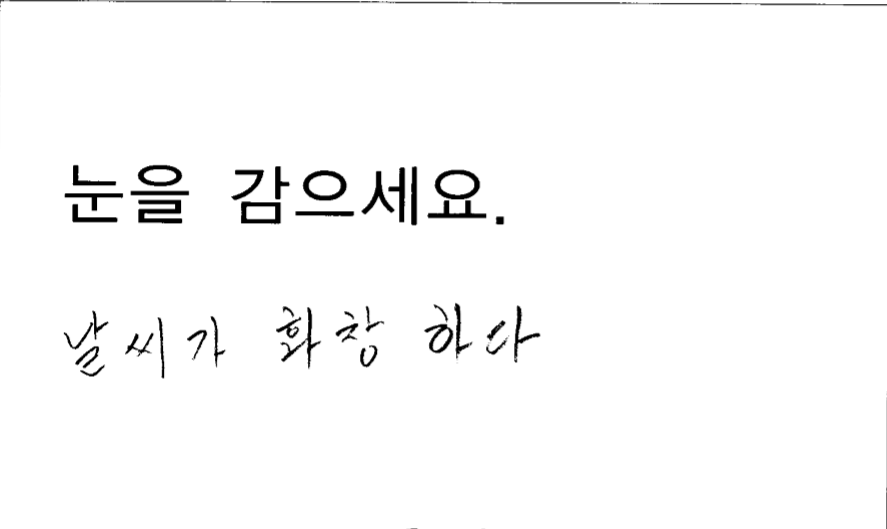 눈을 감으세요.
날씨가 화창 하다